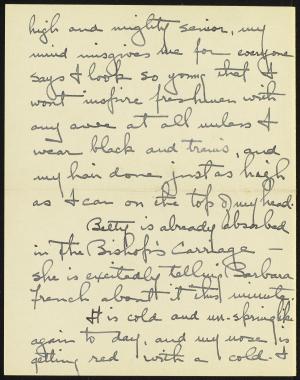 high and mighty senior, my
mind misgives me for everyone
says I look so young that I
won't inspire freshmen with
any awe at all unless I
wear black and trains, and
my hair done just as high
as I can on the top of my head.
Betty is already absorbed
in The Bishop's Carriage –
she is excitedly telling Barbara
French about it this minute.
It is cold and un-springlike
again to day, and my nose is
getting red with a cold. I